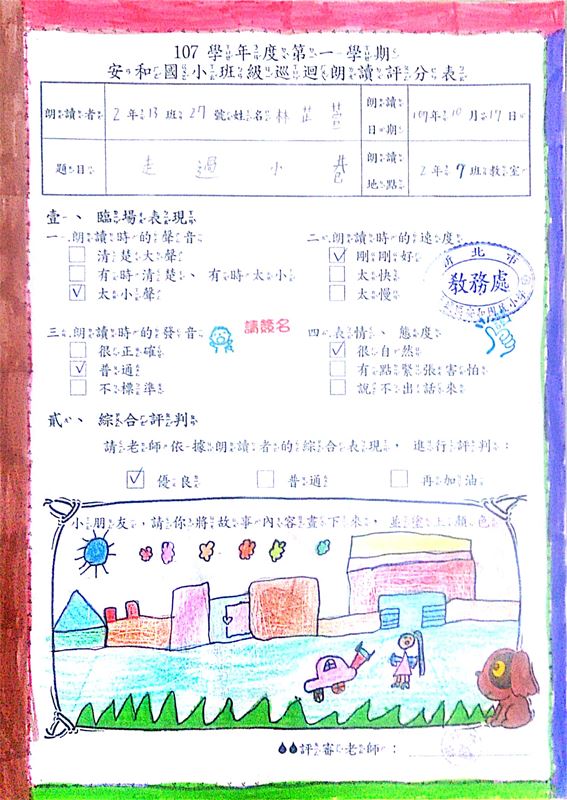 107學年度第一學期
安和國小班級巡迴朗讀評分表
朗讀者 2年13班27號姓名林芷
朗讀日期 107年10月17日
題目 走過小巷
朗讀地點 2年9班教室
壹、臨場表現
一.朗讀時的聲音
清楚大聲
有時清楚、有時太小
太小聲
二.朗讀時的速度
剛剛好
太快
太慢
新北市
教務處
三.朗讀時的發音
很正確
普通
不標準
請簽名
四.表情、態度
很自然
有點緊張害怕
說不出話來
貳、綜合評判
請老師依據朗讀者的綜合表現,進行評判:
優良 普通 再加油
小朋友,請你將故事內容畫下來,並塗上顏色
評審老師: